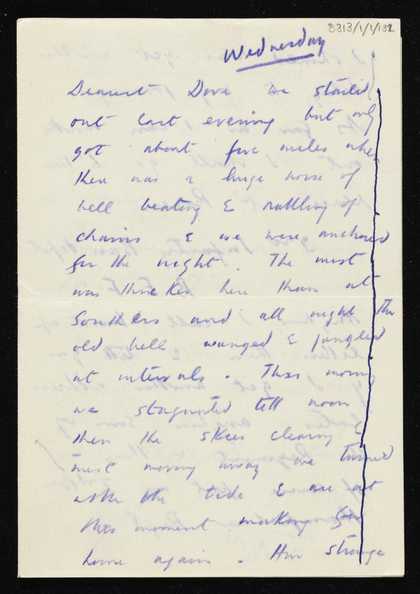 8313/1/1/132
Wednesday
Dearest Dove we started
out last evening but only
got about five miles when
there was a huge noise of
bell beating & rattling of
chains & we were anchored
for the night. The mist
was thicker here than at
Southers and all night the
old bell wanged & jangled
at intervals. This morning
we stagnated till noon
then the skies clearing &
mist moving away we turned
with the tide & are at
this moment making for
home again. How strange